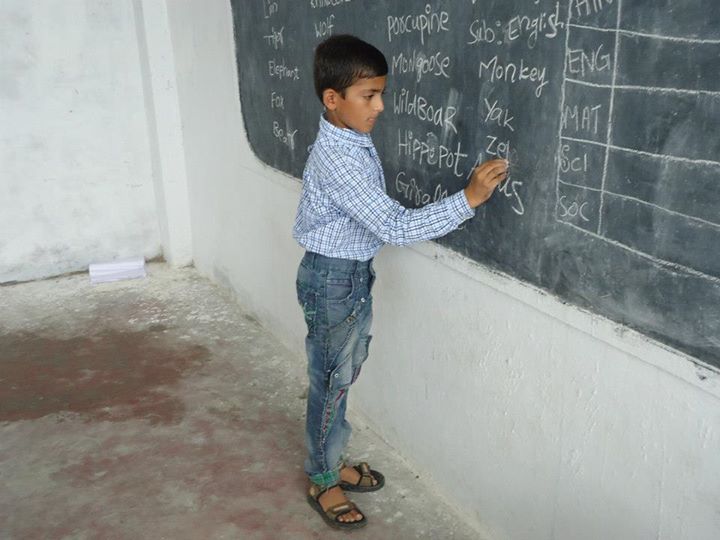 Wolf
Tiger
Elephant
Fox
Bear
Porcupine
Mongoose
WildBoar
Hippopotamus
Sub: English
Monkey
Yak
Zeb
ENG
MAT
SCI
SOC